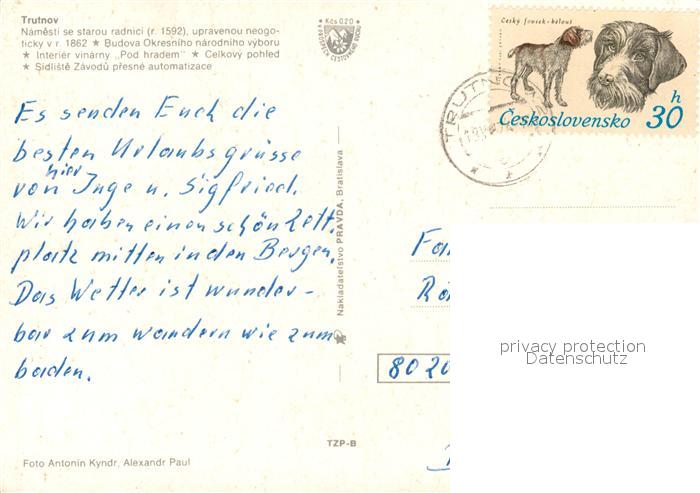 Trutnov
Náměstí se starou radnicí (r. 1592), upravenou neogo-
ticky v r. 1862 ★ Budova Okresního národního výboru
★ Interiér vinárny „Pod hradem" ★ Celkový pohled
★ Sídliště Závodů přesné automatizace
Kčs 0,20
Český fousek-bělouš
Československo 30 h
TRUTNO
Es senden Euch die
besten Urlaubsgrüsse
hier
von Inge u. Sigfried.
Wir haben einen schön Zelt-
platz mitten in den Bergen.
Das Wetter ist wunder-
bar zum wandern wie zum
baden.
Nakladatelství PRAVDA, Bratislava
Fa
8020
privacy protection
Datenschutz
TZP-B
Foto Antonín Kyndr, Alexandr Paul